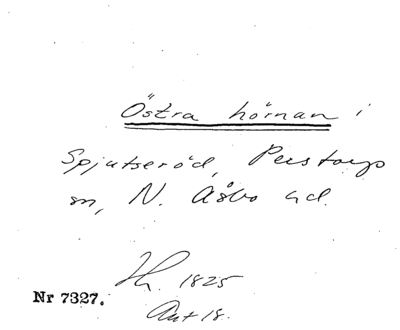 Östra hörnan i
Spjutseröd, Perstorps
sn, N. Åsbo hd.
Lh. 1825
Akt 18.
Nr 7327.